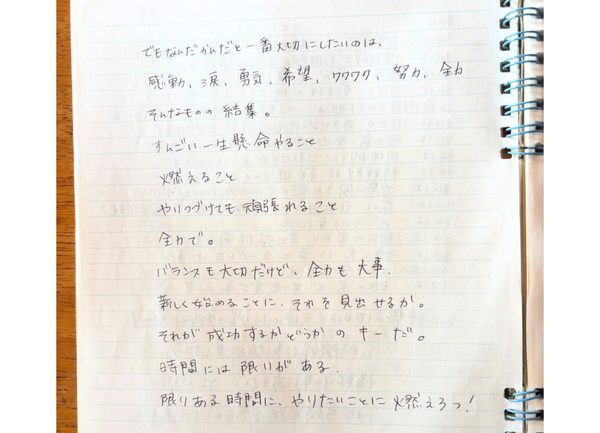 でもなんだかんだと一番大切にしたいのは、
感動、涙、勇気、希望、ワクワク、努力、全力
そんなものの結集。
すんごい一生懸命やること
燃えること
やりつづけても頑張れること
全力で。
バランスも大切だけど、全力も大事.
新しく始めることに、それを見出せるか。
それが成功するかどうかのキーだ。
時間には限りがある.
限りある時間に、やりたいことに燃えろっ!